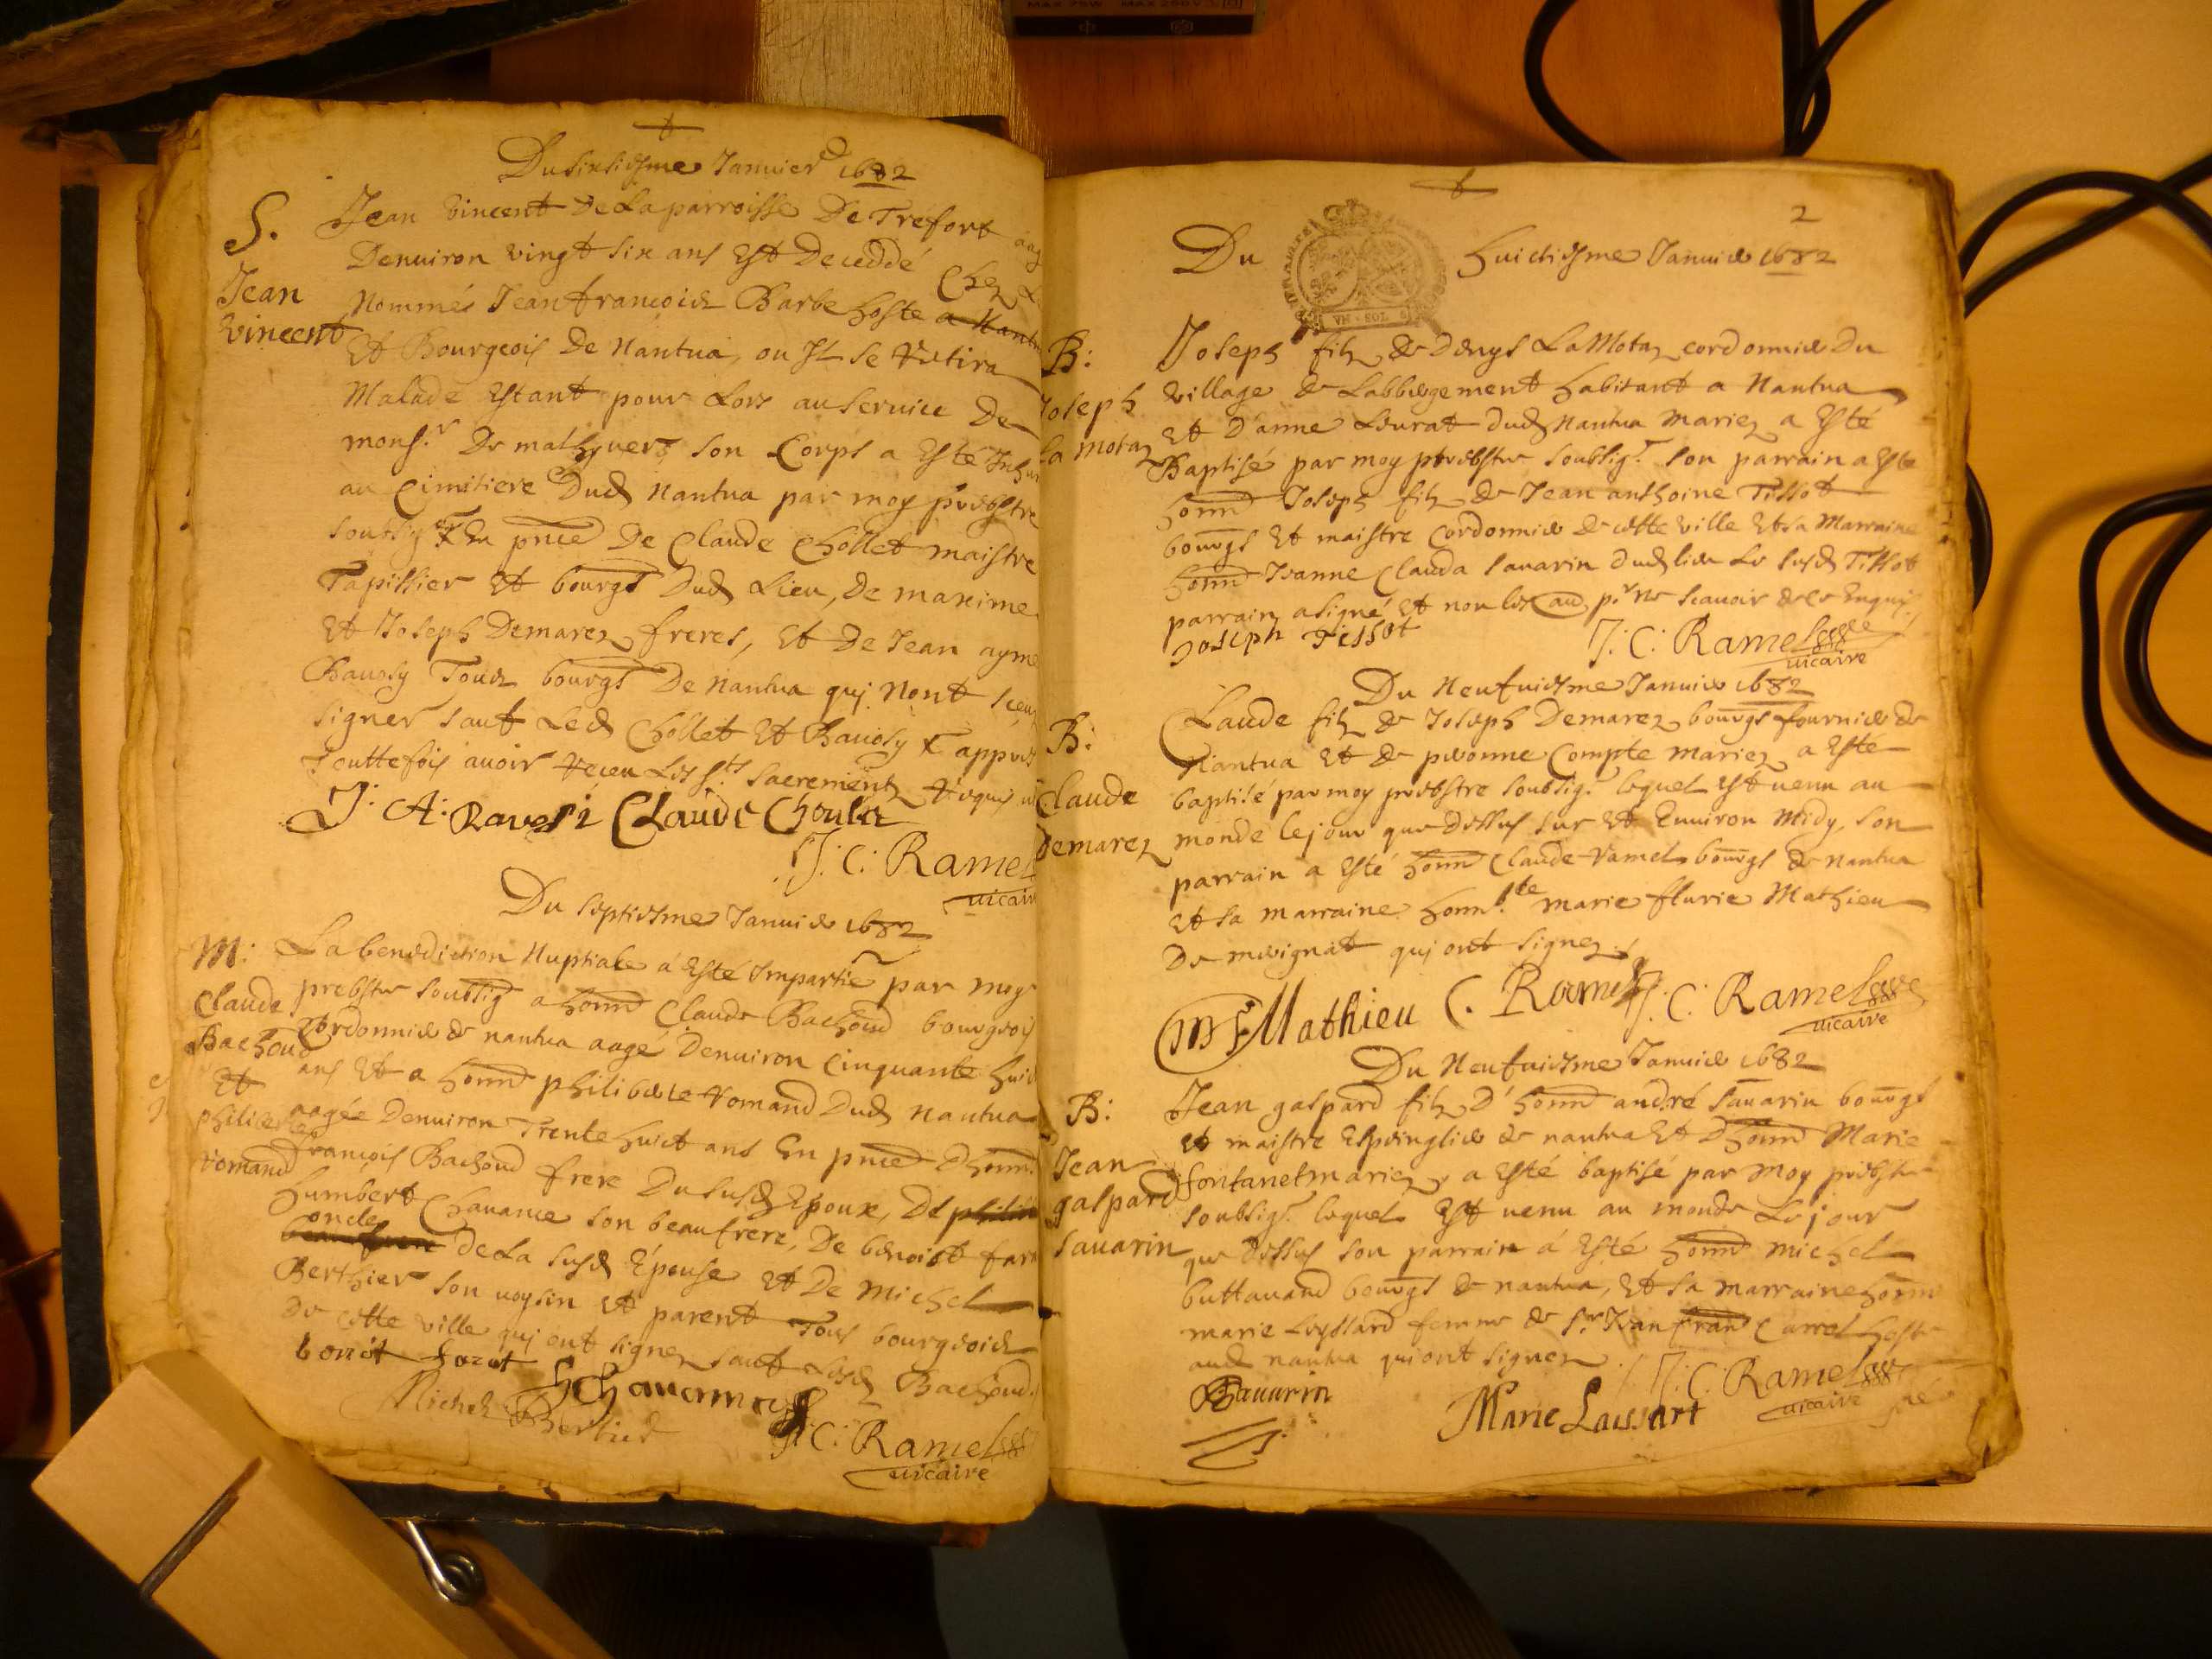 Du sixsiesme Januier 1682
S. Jean Vincent
Jean Vincent De La parroisse De Tréfort
Denuiron vingt six ans Est Deceddé Chez
Nommés Jean francois Barbe hoste a Nant
Et Bourgeois De Nantua, ou Il se Retira
Malade Estant pour Lors au seruice De
mons.r De mathyuers son Corps a Esté
au Cimitiere Dud Nantua par moy prebstre
soubsig En pnce De Claude Chollet maistre
Tapissier Et bourgs Dud Lieu, De maxime
Et Joseph Demarez freres, Et De Jean ayme
Tous bourgs De Nantua quj Nont sceu
signer sauf Led Chollet Et
Touttefois auoir receu Les s.ts sacrements
J. C. Ramel
uicaire
Du septiesme Januier 1682
M: Claude Bachoud Et philiberte romand
La benediction Nuptiale á Esté Impartie par moy
prebstre soubsig a honn Claude Bachoud bourgeois
Cordonnier de nantua aagé Denuiron Cinquante huit
ans Et a honn philiberte romand Dud nantua
aagée Denuiron Trente huict ans En pnce Dhonn
françois Bachoud frere Du susd Epoux, De
humbert Chauance son beaufrere, De benoist
oncle De La susd Epouse Et De Michel
Berthier son uoysin Et parent Tous bourgeois
De cette ville quj ont signez sauf Led Bachoud
J. C. Ramel
uicaire
2
VN SOL
Du huictiesme Januier 1682
B: Joseph La motaz
Joseph filz de Denys La Motaz cordonnier Du
village de Labbergement habitant a Nantua
Et D'anne Leurat dud Nantua mariez a Esté
Baptisé par moy prebstre soubsig.é son parrain a Esté
honn Joseph filz de Jean anthoine Tissot
bourgs Et maistre Cordonnier de cette ville Et sa Marraine
honn Jeanne Clauda sauarin dud lieu Le susd Tissot
parrain a signé Et non les au p.r ne scauoir de ce Enquis
Joseph Tissot
J. C. Ramel
uicaire
Du Neufuiesme Januier 1682
B: Claude Demarez
Claude filz de Joseph Demarez bourgs fournier de
Nantua Et de peronne Compte mariez a Esté
baptisé par moy prebstre soubsig.é lequel Est uenu au
monde le jour que Dessus sur Et Enuiron Midy, son
parrain a Esté honn Claude ramel bourgs de nantua
Et sa marraine honn.ste marie flurie Mathieu
De meignat quj ont signez
Mathieu C. Ramel J. C. Ramel
uicaire
Du Neufuiesme Januier 1682
B: Jean gaspard sauarin
Jean gaspard filz D'honn andré sauarin bourgs
Et maistre Espinglier de nantua Et Dhonn Marie
fontanet mariez, a Esté baptisé par moy prebstre
soubsig.é lequel Est uenu au monde Le jour
que Dessus son parrain á Esté honn michel
buttauand bourgs de nantua, Et sa marraine honn
marie Leyssard femme de s.r Jean fran Carrel hoste
aud nantua qui ont signez
J. C. Ramel
uicaire
Marie Laissart